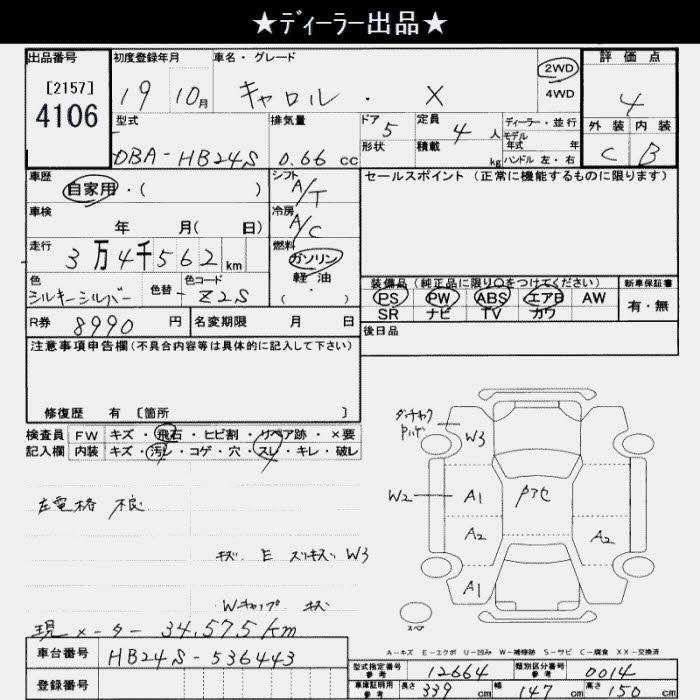 ★ディーラー出品★
出品番号 初度登録年月 車名・グレード 2WD 評価点
[2157] 19 10月 キャロル・X 4WD 4
4106 型式 排気量 ドア 5 定員 4人 ディーラー・並行 外装 内装
DBA-HB24S 0.66cc 形状 積載 kg モデル年式 年 C B
ハンドル 左・右
車歴 シフト セールスポイント(正常に機能するものに限ります)
自家用・( ) A/T
車検 冷房
年 月( 日) A/C
走行 燃料
3万4千562km ガソリン
軽油
色 色替 色コード 装備品(純正品に限り○をつけてください) 新車保証書
シルキーシルバー - Z2S (・) PS PW ABS エアB AW 有・無
SR ナビ TV カワ
R券 8990円 名変期限 月 日 後日品
注意事項申告欄(不具合内容等は具体的に記入して下さい)
修復歴 有 [箇所 ]
検査員 FW キズ・飛石・ヒビ割・リペア跡・×要
記入欄 内装 キズ・汚レ・コゲ・穴・スレ・キレ・破レ
W3
左電格 不良 W2 A1
A2 A2
キズ E スリキズ W3
A1
Wキャップ キズ
スペア
現メーター 34,575km
A-キズ E-エクボ U-凹み W-補修跡 S-サビ C-腐食 XX-交換済
車台番号 HB24S-536443 型式指定番号 参考 12664 類別区分番号 参考 0014
登録番号 車庫証明用 参考 長さ 339cm 幅 147cm 高さ 150cm